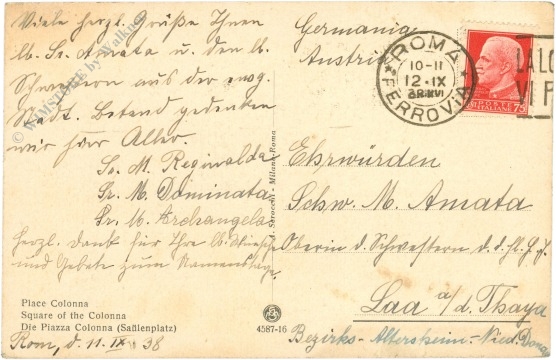 Viele herzl. Grüße Ihnen
lb. Sr. Amata u. den lb.
Schwestern aus der ewg.
Stadt. Betend gedenken
wir hier Aller.
Sr. M. Reginalda
Sr. M. Dominata
Sr. M. Archangela
herzl. Dank für Ihre lb. Wünsche
und Gebete zum Namenstage.
Place Colonna
Square of the Colonna
Die Piazza Colonna (Saßlenplatz)
Rom, d. 11. IX. 38
A. Scrocchi - Milano-Roma
4587-16
Germania
Austria
ROMA
FERROVIA
10-11
12·IX
POSTE ITALIANE
75
Ehrwürden
Schw. M. Amata
Oberin d. Schwestern d. d. hl. F. J.
Laa a/d. Thaya
Bezirks-Altersheim-Nied. Donau
© WMSTORE by Walkner